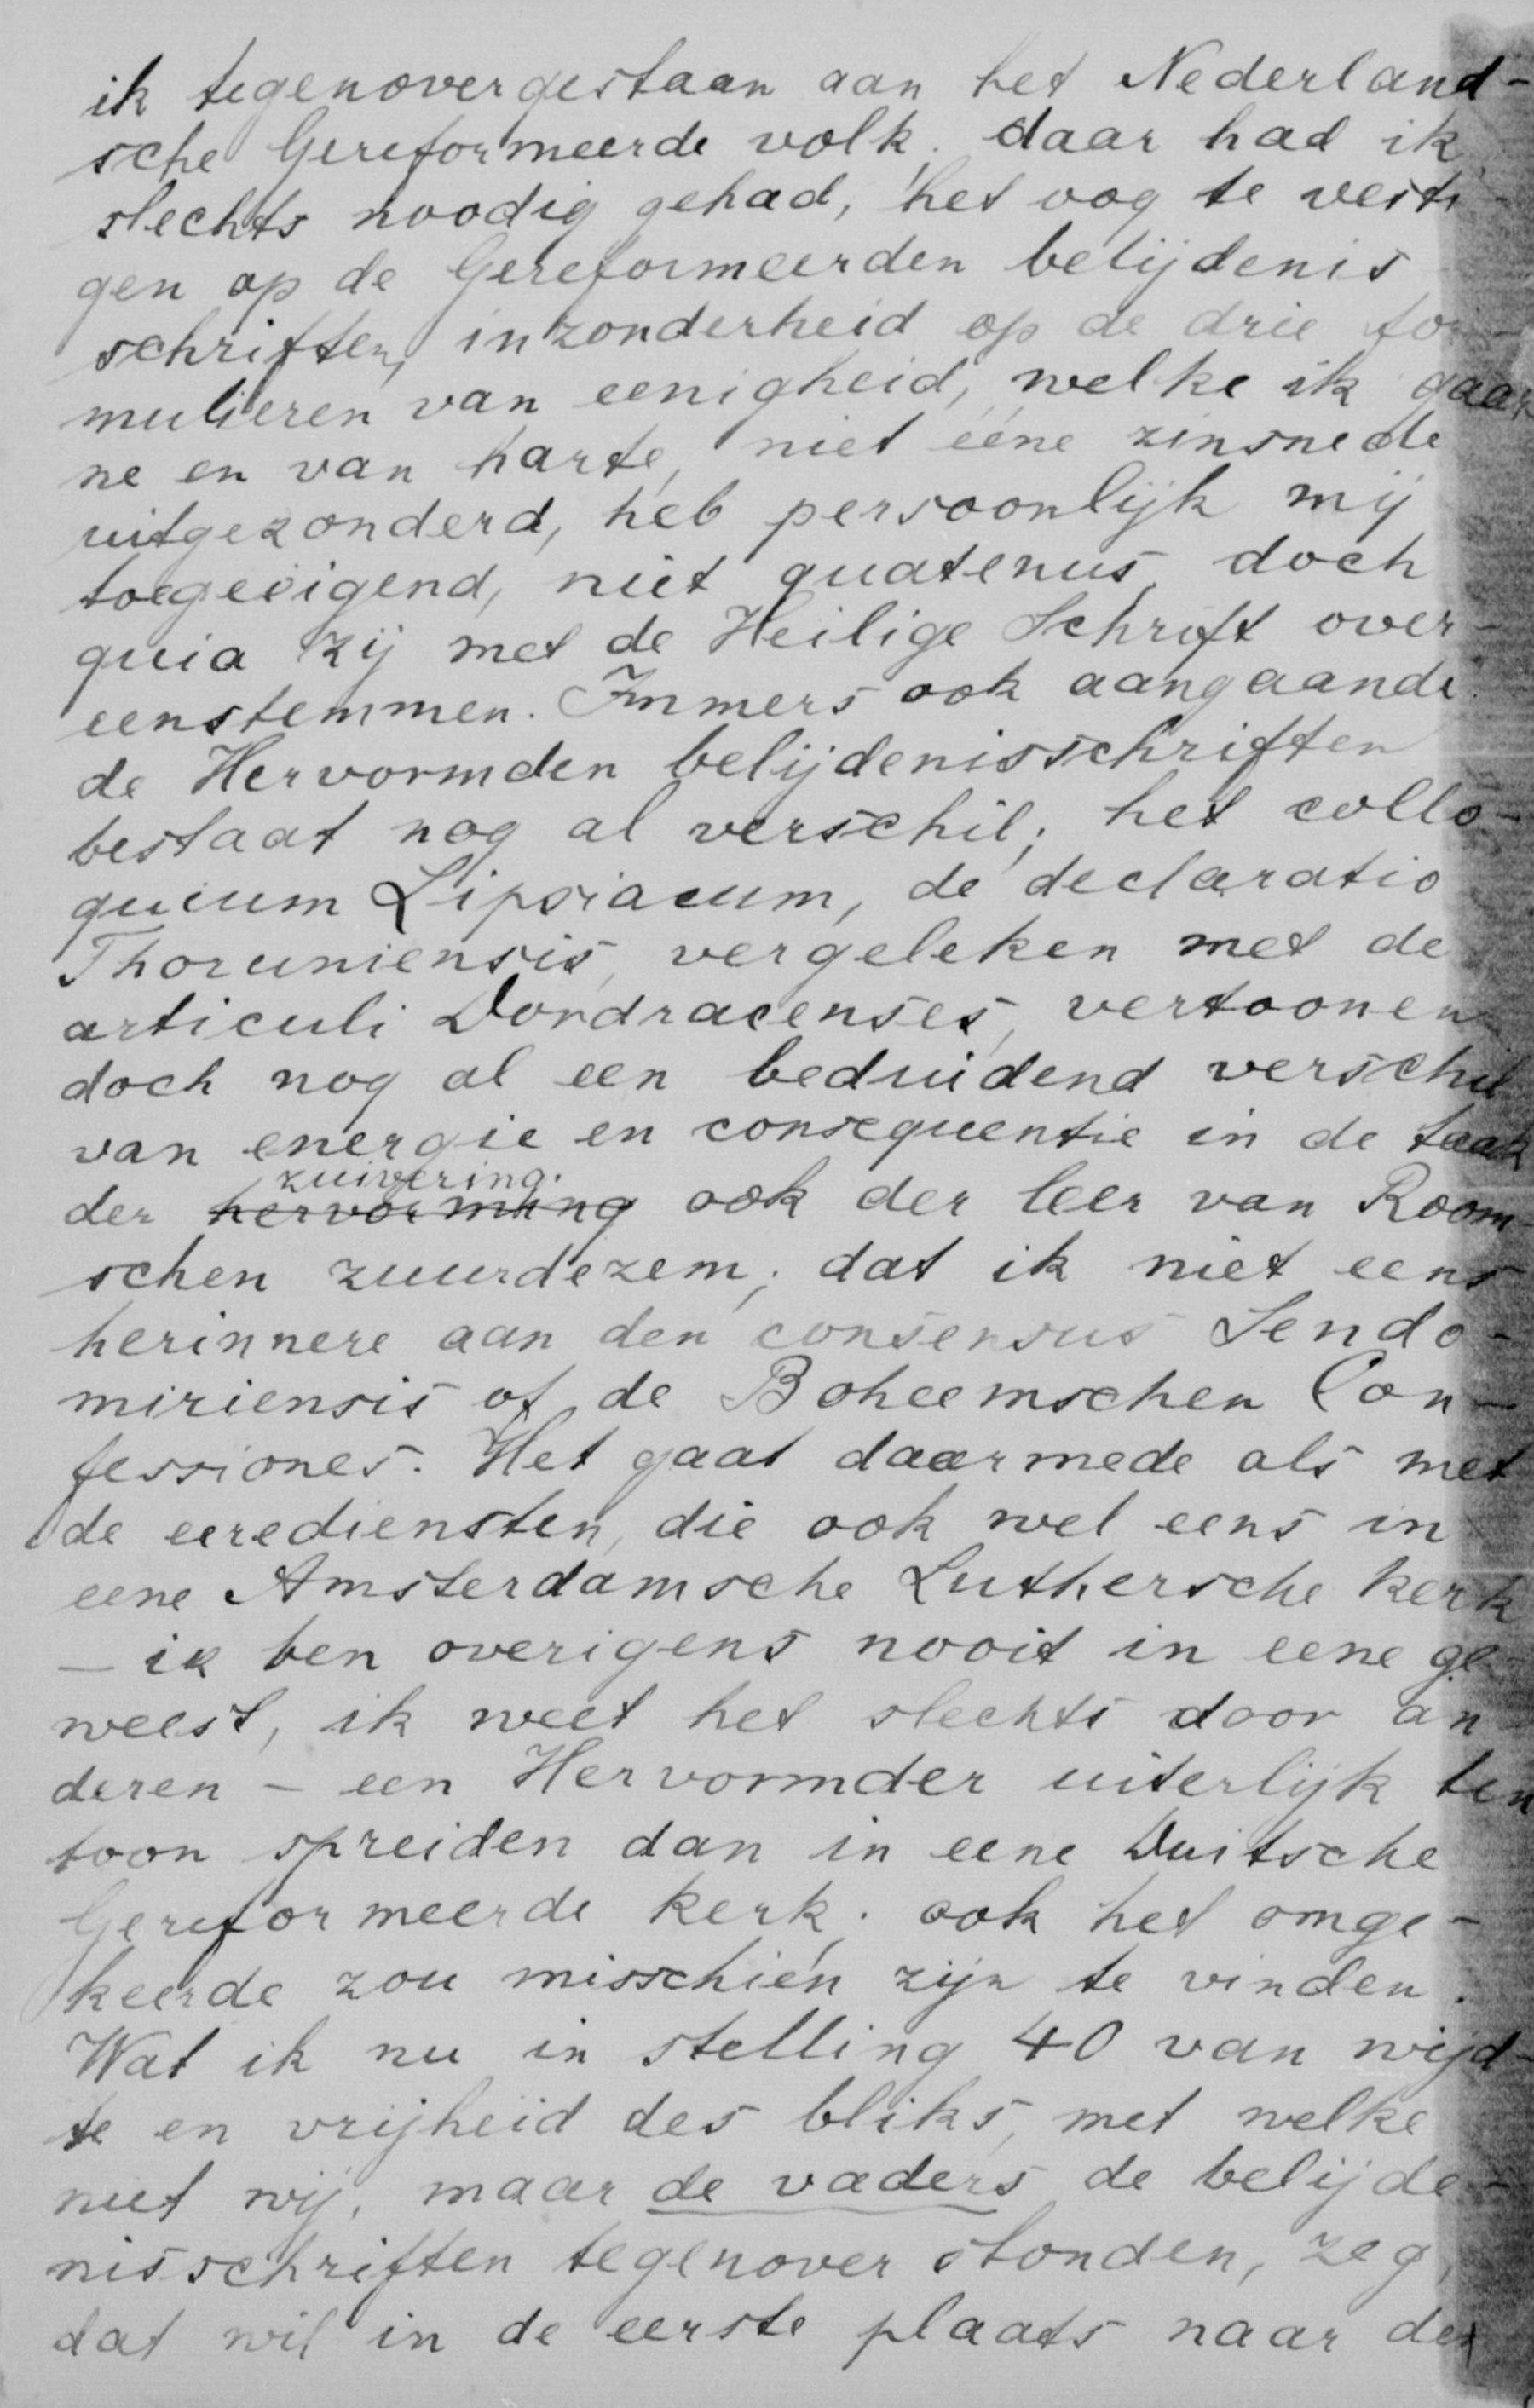 ik tegenovergestaan aan het Nederland-
sche Gereformeerde volk; daar had ik
slechts noodig gehad, het oog te vesti-
gen op de Gereformeerden belijdenis
schriften, inzonderheid op de drie for-
mulieren van eenigheid, welke ik gaar
ne en van harte, niet ééne zinsnede
uitgezonderd, heb persoonlijk mij
toegeëigend, niet quatenus, doch
quia zij met de Heilige Schrift over-
eenstemmen. Immers ook aangaande
de Hervormden belijdenisschriften
bestaat nog al verschil; het collo-
quium Lipsiacum, de declaratio
Thoruniensis, vergeleken met de
articuli Dordracenses, vertoonen
doch nog al een beduidend verschil
van energie en consequentie in de taak
zuivering.
der hervorming ook der leer van Room-
schen zuurdezem; dat ik niet eens
herinnere aan den consensus Sendo-
miriensis of de Boheemschen Con-
fessiones. Het gaat daarmede als met
de eerediensten, die ook wel eens in
eene Amsterdamsche Luthersche kerk
— ik ben overigens nooit in eene ge-
weest, ik weet het slechts door an-
deren — een Hervormder uiterlijk ten
toon spreiden dan in eene Duitsche
Gereformeerde kerk; ook het omge-
keerde zou misschien zijn te vinden.
Wat ik nu in stelling 40 van wijd-
te en vrijheid des bliks, met welke
niet wij, maar de vaders de belijde-
nisschriften tegenover stonden, zeg,
dat wil in de eerste plaats naar den